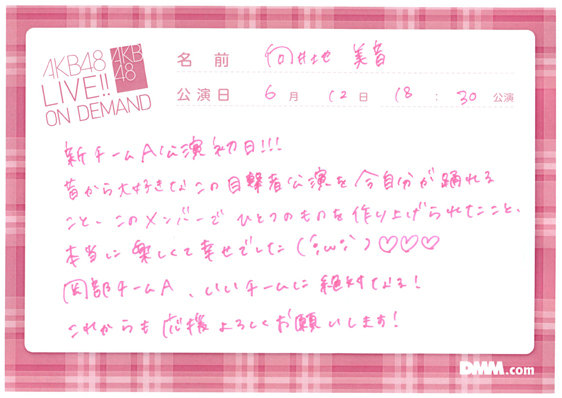 AKB48
LIVE!!
ON DEMAND
AKB
48
名前 向井地 美音
公演日 6月 12日 18:30 公演
新チームA公演初日!!!
昔から大好きなこの目撃者公演を今自分が踊れる
こと、このメンバーでひとつのものを作り上げられたこと、
本当に楽しくて幸せでした(´ω`)♡♡♡
岡部チームA、いいチームに絶対なる!
これからも応援よろしくお願いします!
DMM.com